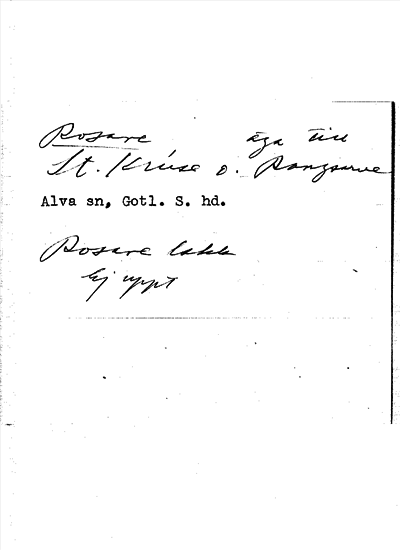 Rosare äga till
St. Kruse o. Rangsarve
Alva sn, Gotl. S. hd.
Rosare
Ej uppt